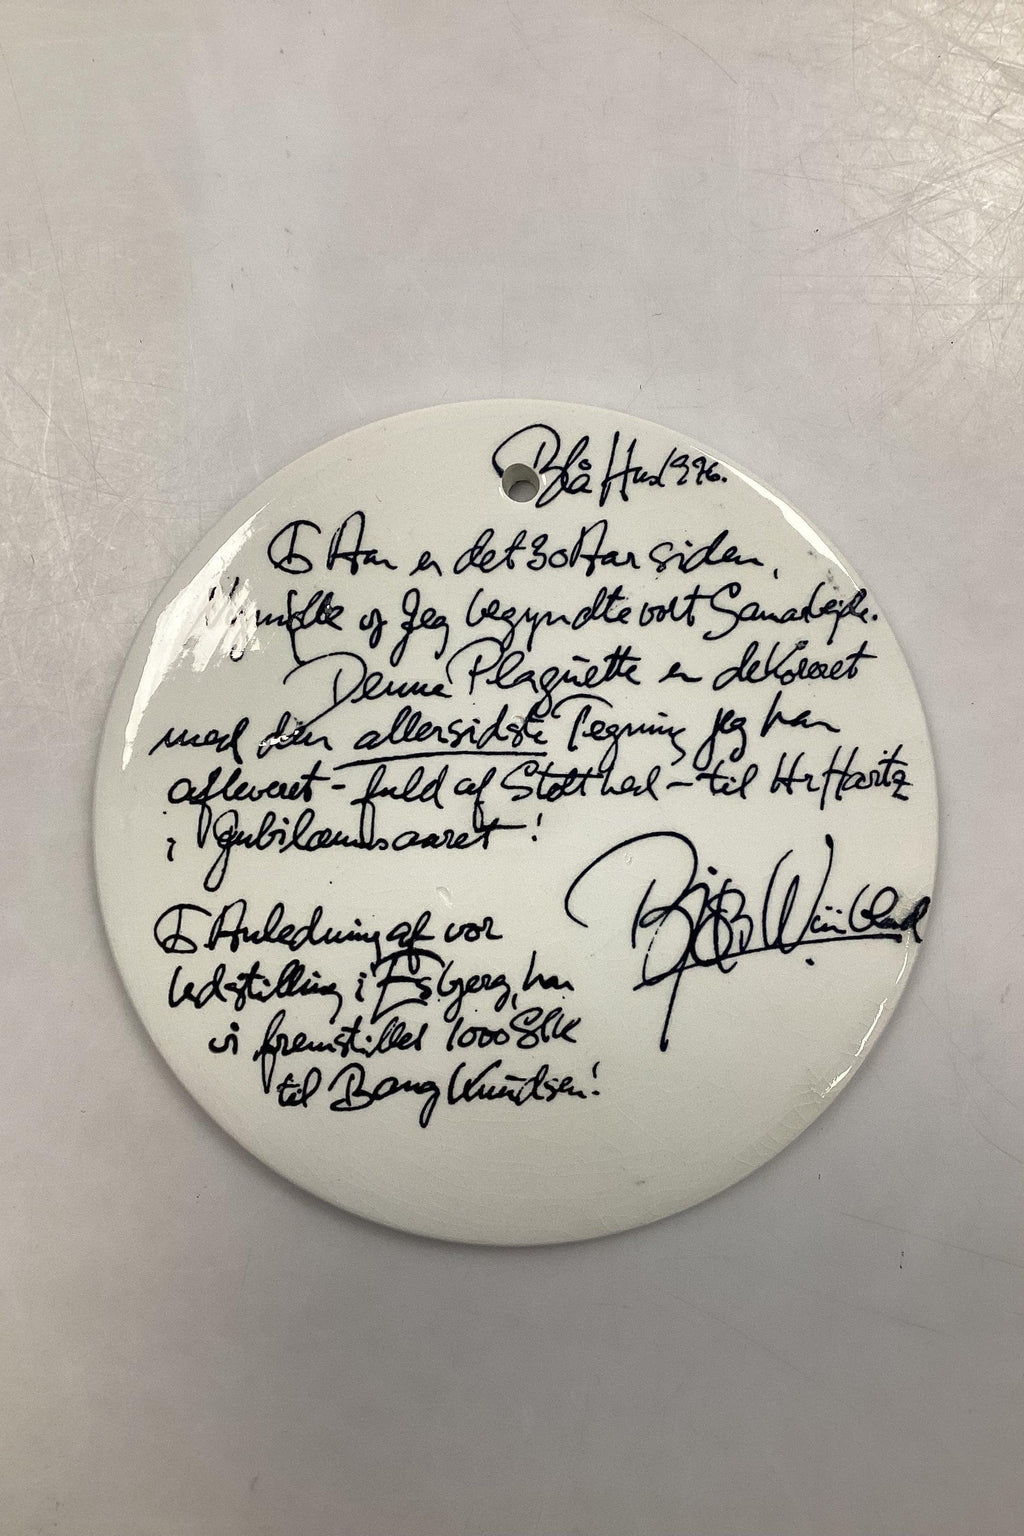 Blå Hus 1996.
I Aar er det 30 Aar siden,
Nymølle og Jeg begyndte vort Samarbejde.
Denne Plaquette er dekoreret
med den allersidste Tegning jeg har
afleveret - fuld af Stolthed - til Hr Haritz
i Jubilæumsaaret!
Bjørn Wiinblad
I Anledning af vor
Udstilling i Esbjerg, har
vi fremstillet 1000 Stk
til Bang Knudsen!